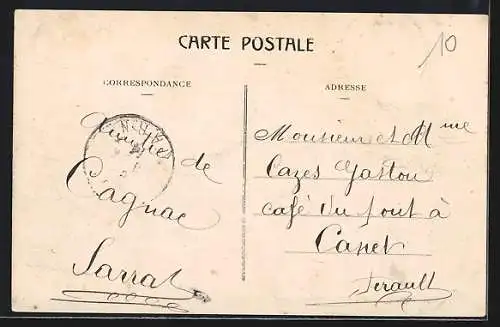 CARTE POSTALE
10
CORRESPONDANCE
de
Cagnac
Sarrat
ADRESSE
Monsieur et Mme
Cazes Gaston
café du pont à
Canet
Herault